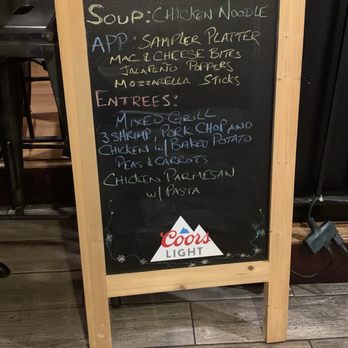 SOUP: CHICKEN NOODLE
APP: SAMPLER PLATTER
MAC & CHEESE BITES
JALAPENO POPPERS
MOZZARELLA STICKS
ENTREES:
MIXED GRILL
3 SHRIMP, PORK CHOP AND
CHICKEN W/ BAKED POTATO
PEAS & CARROTS
CHICKEN PARMESAN
W/ PASTA
Coors
LIGHT